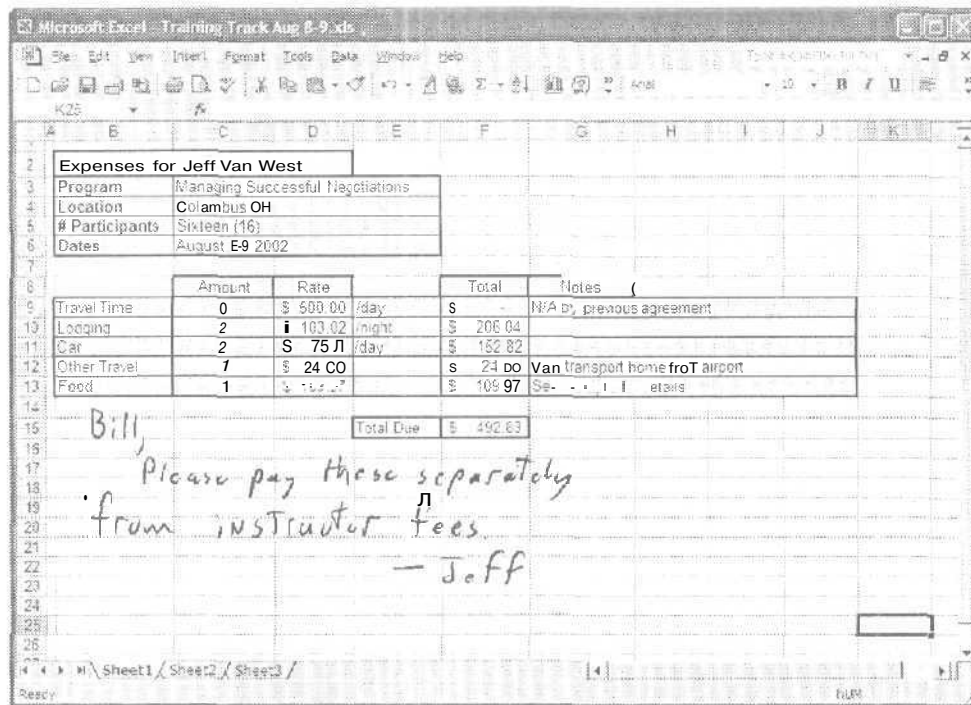 Microsoft Excel - Training Track Aug 8-9.xls
File Edit View Insert Format Tools Data Window Help
Arial 10 B I U
K25 fx
A B C D E F G H I J K
2 Expenses for Jeff Van West
3 Program Managing Successful Negotiations
4 Location Colambus OH
5 # Participants Sixteen (16)
6 Dates August E-9 2002
7
8 Amount Rate Total Notes (
9 Travel Time 0 $ 500.00 /day S - N/A by previous agreement
10 Lodging 2 i 103.02 /night $ 206.04
11 Car 2 S 75 Л /day $ 152.82
12 Other Travel 1 $ 24 CO s 24 DO Van transport home froT airport
13 Food 1 $ $ 109 97 etails
14
15 Total Due $ 492.83
Bill,
16
17 Please pay these separately
18
19 Л
20 from instructor fees.
21
22 — Jeff
23
24
25
26
Sheet1 / Sheet2 / Sheet3 /
Ready NUM